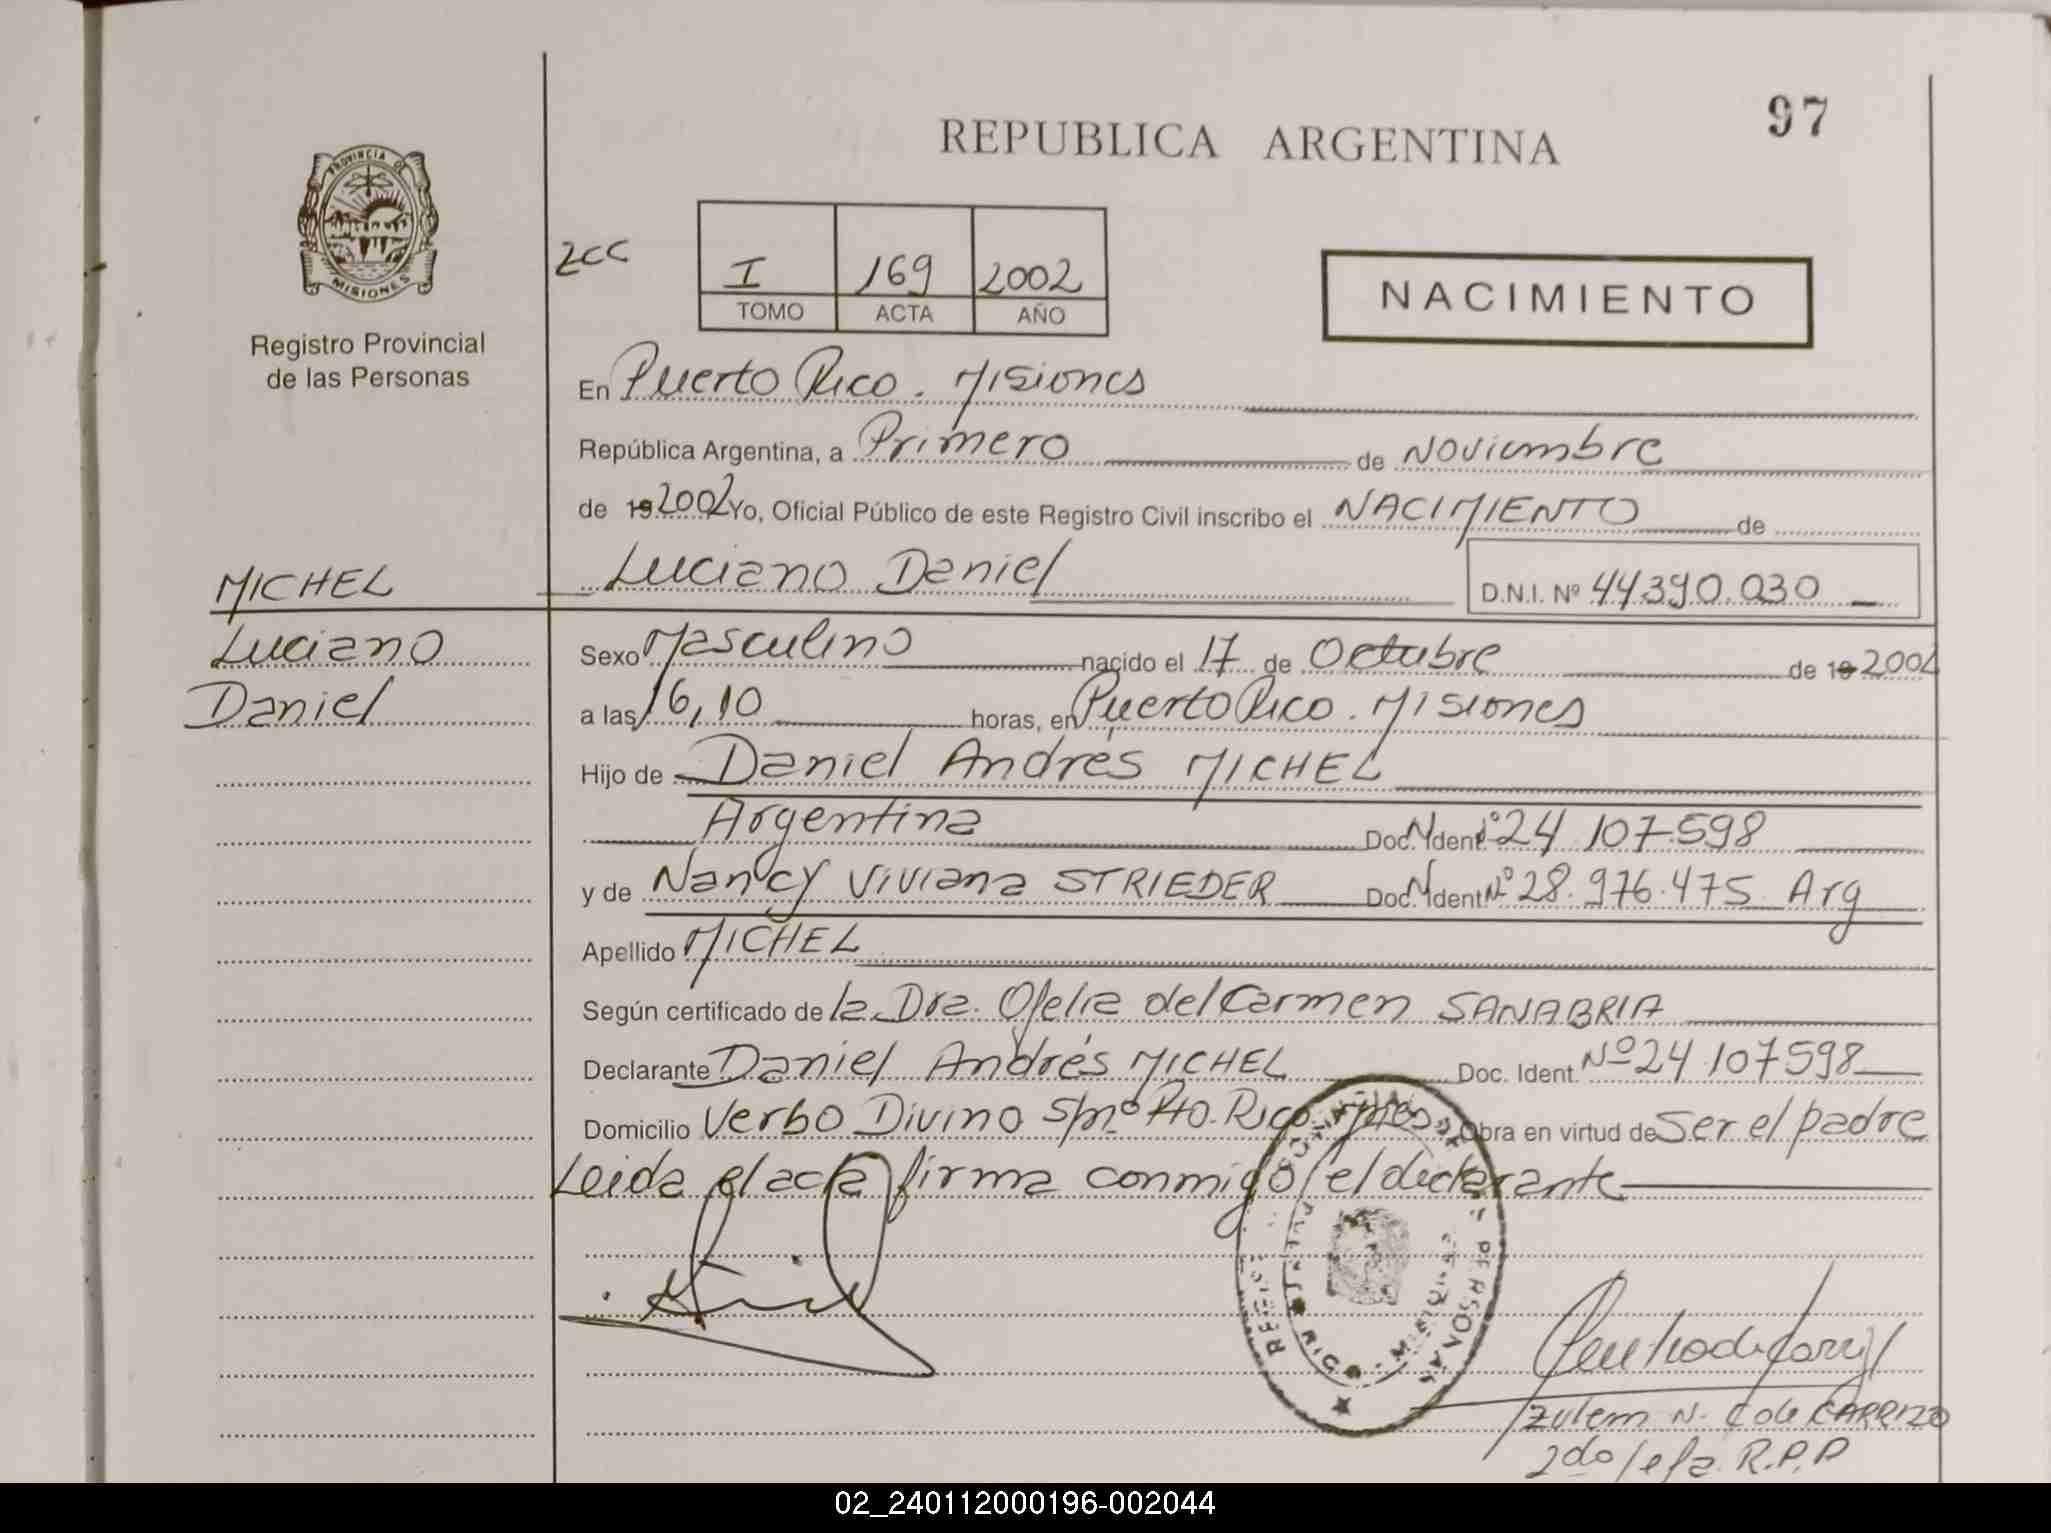 97
REPUBLICA ARGENTINA
PROVINCIA DE
MISIONES
Registro Provincial
de las Personas
2CC
I 169 2002
TOMO ACTA AÑO
NACIMIENTO
En Puerto Rico. Misiones
República Argentina, a Primero de Noviembre
de 19 2002 Yo, Oficial Público de este Registro Civil inscribo el NACIMIENTO de
Luciano Daniel D.N.I. Nº 44.390.030
MICHEL
Luciano
Daniel
Sexo Masculino nacido el 17 de Octubre de 19 2002
a las 16,10 horas, en Puerto Rico. Misiones
Hijo de Daniel Andrés MICHEL
Argentina Doc. N Ident. Nº 24 107.598
y de Nancy Viviana STRIEDER Doc. N Ident Nº 28.976.475 Arg
Apellido MICHEL
Según certificado de la Dra. Ofelia del Carmen SANABRIA
Declarante Daniel Andrés MICHEL Doc. Ident. Nº 24 107598
Domicilio Verbo Divino S/nº Pto. Rico Mnes Obra en virtud de ser el padre
Leida el acta firma conmigo el declarante
Zulem N. C de CARRIZO
2do Jefa R.P.P
02_240112000196-002044